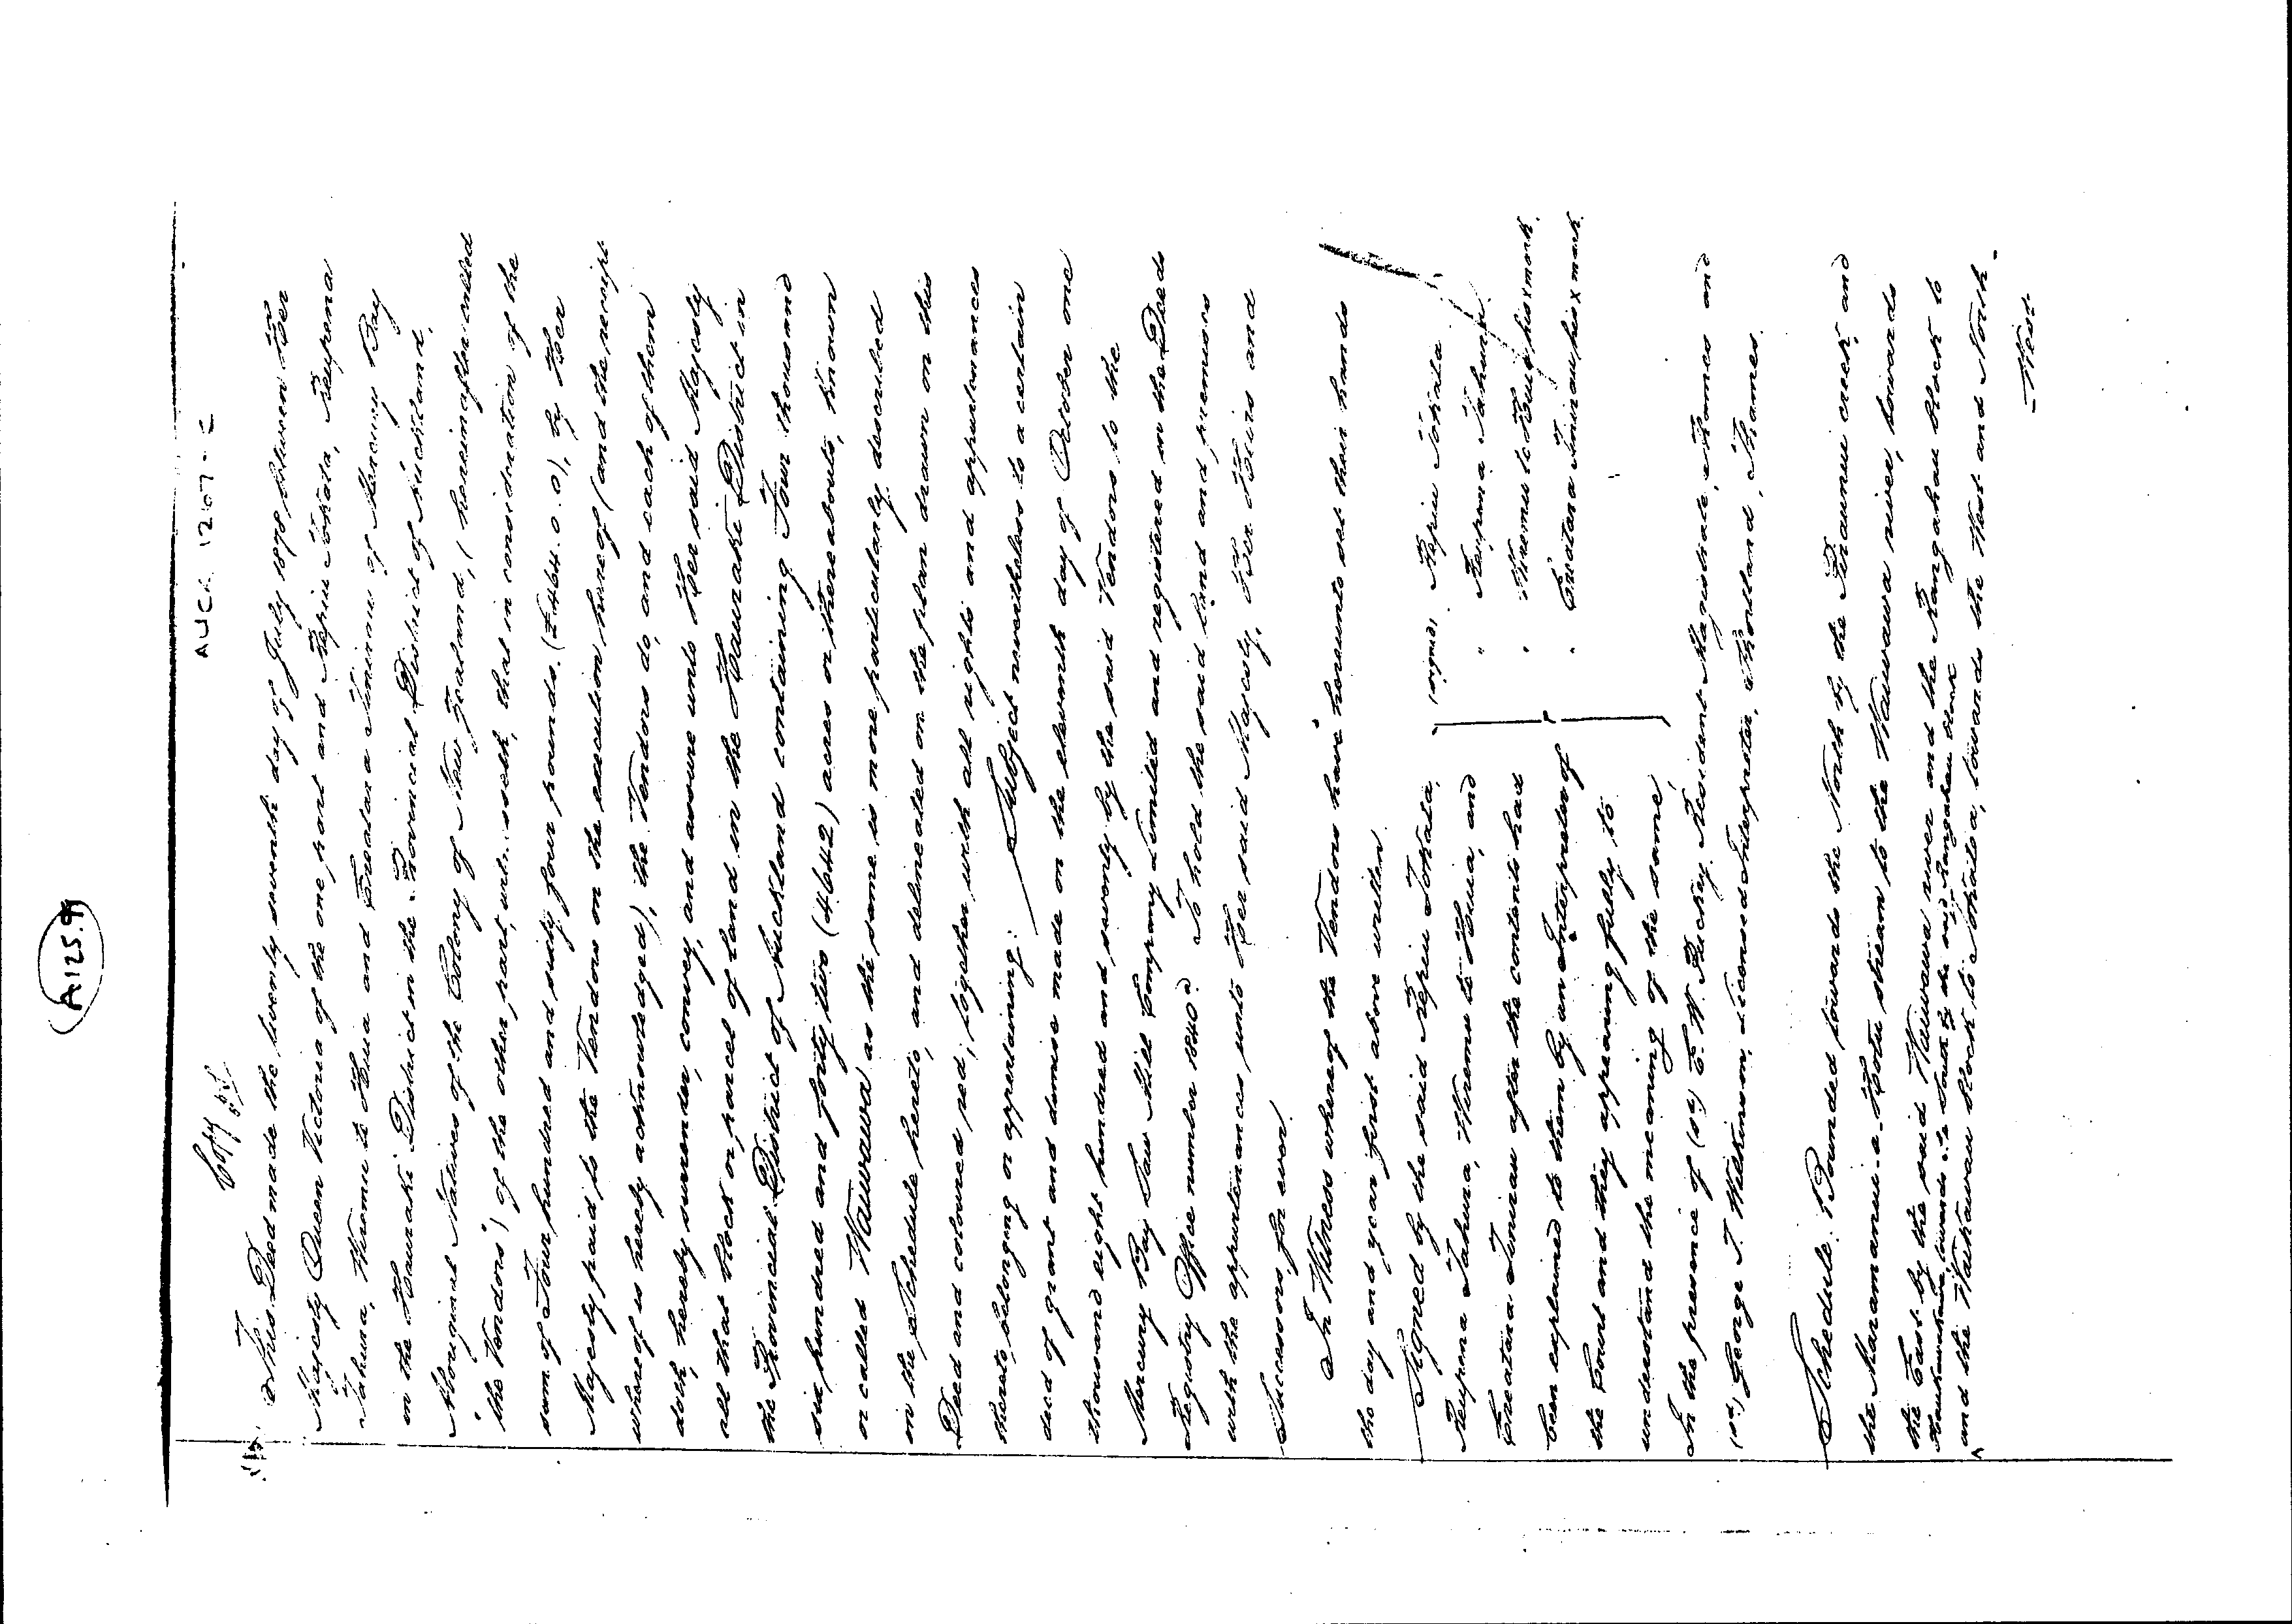 A125.9
AUCK 1207-C
Copy
This Deed made the twenty seventh day of July 1878 between Her
Majesty Queen Victoria of the one part and Repiu Tokata, Reupena
Tahuna, Wiremu te Huia and Ereatara Timirau of Mercury Bay
in the Hauraki District in the Provincial District of Auckland,
Aboriginal Natives of the Colony of New Zealand, (hereinafter called
"the Vendors") of the other part, witnesseth, that in consideration of the
sum of Four hundred and sixty four pounds. (£464.0.0), by Her
Majesty paid to the Vendors on the execution hereof (and the receipt
whereof is hereby acknowledged), the Vendors do, and each of them
doth, hereby surrender, convey, and assure unto Her said Majesty
all that block or parcel of land in the Hauraki District in
the Provincial District of Auckland containing Four thousand
six hundred and forty two (4642) acres or thereabouts, known
or called Waiwawa as the same is more particularly described
in the Schedule hereto, and delineated on the plan drawn on this
Deed and coloured red; together with all rights and appurtenances
thereto belonging or appertaining: Subject nevertheless to a certain
deed of grant and demise made on the eleventh day of October one
thousand eight hundred and seventy by the said Vendors to the
Mercury Bay Saw Mill Company Limited and registered in the Deeds
Registry Office number 18402. To hold the said land and premises
with the appurtenances unto Her said Majesty, Her Heirs and
Successors, for ever.
In Witness whereof the Vendors have hereunto set their hands
the day and year first above written.
Signed by the said Repiu Tokata, (signed) Repiu Tokata
Reupena Tahuna, Wiremu te Huia, and " Reupena Tahuna
Ereatara Timirau after the contents had " Wiremu te Huia his x mark.
been explained to them by an Interpreter of " Ereatara Timirau his x mark.
the Court and they appearing fully to
understand the meaning of the same,
In the presence of (sd) E. W. Puckey, Resident Magistrate, Thames and
(sd) George T. Wilkinson, Licensed Interpreter, Shortland, Thames.
Schedule. Bounded towards the North by the creek, and
the stream to the Waiwawa river, towards
the East by the said Waiwawa river and the Rangahau block to
towards the South by the said Rangahau block
and the block to towards the West and North-
-West